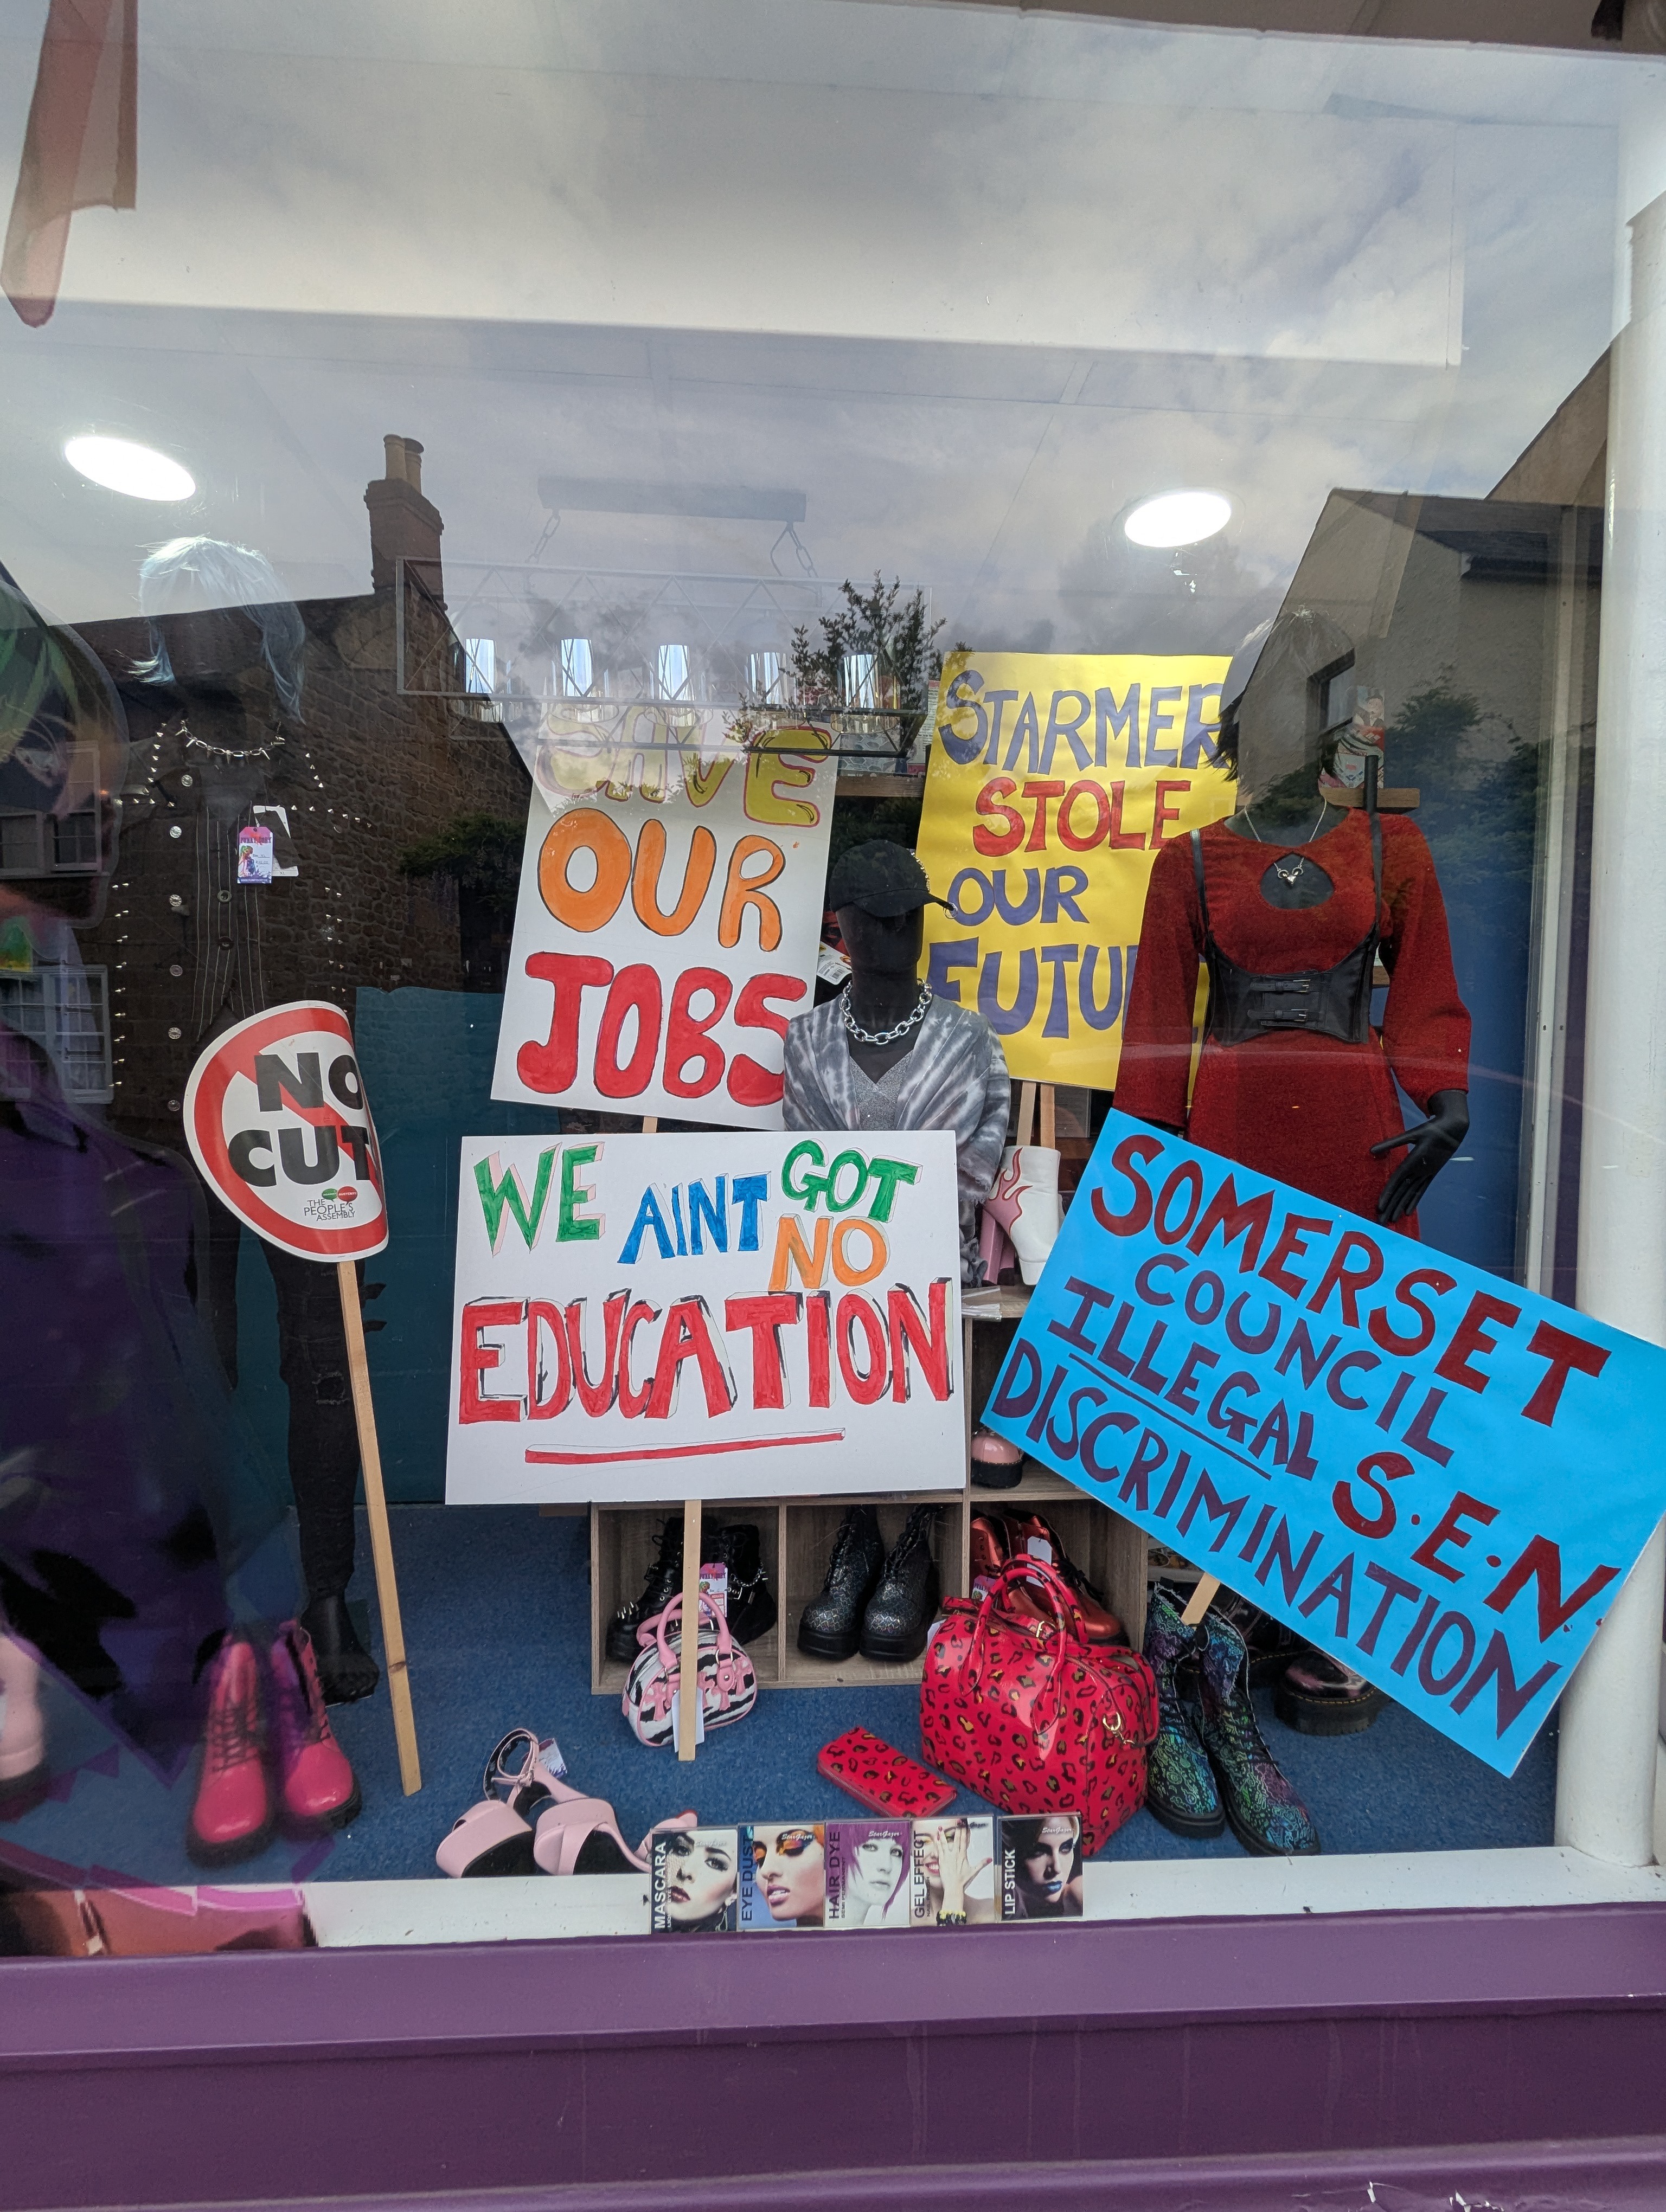 SAVE
OUR
JOBS
STARMER
STOLE
OUR
FUTU
NO
CUT
THE
PEOPLE'S
ASSEMBLY
WE AINT GOT
NO
EDUCATION
SOMERSET
COUNCIL
ILLEGAL S.E.N.
DISCRIMINATION
MASCARA
EYE DUST
StarGazer
HAIR DYE
StarGazer
GEL EFFECT
LIP STICK
StarGazer